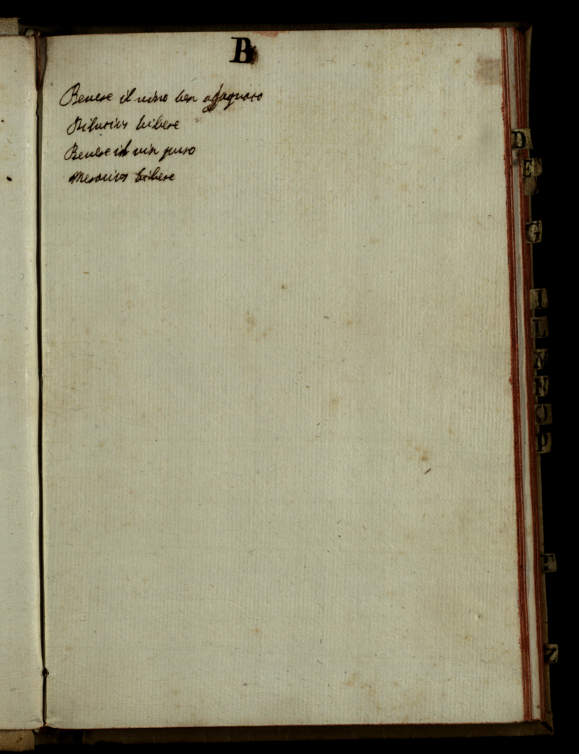 B
Beuere il uino ben adaquato
Dilutius bibere
Beuere il uin puro
Meracius bibere
D
E
G
I
L
N
P
Z